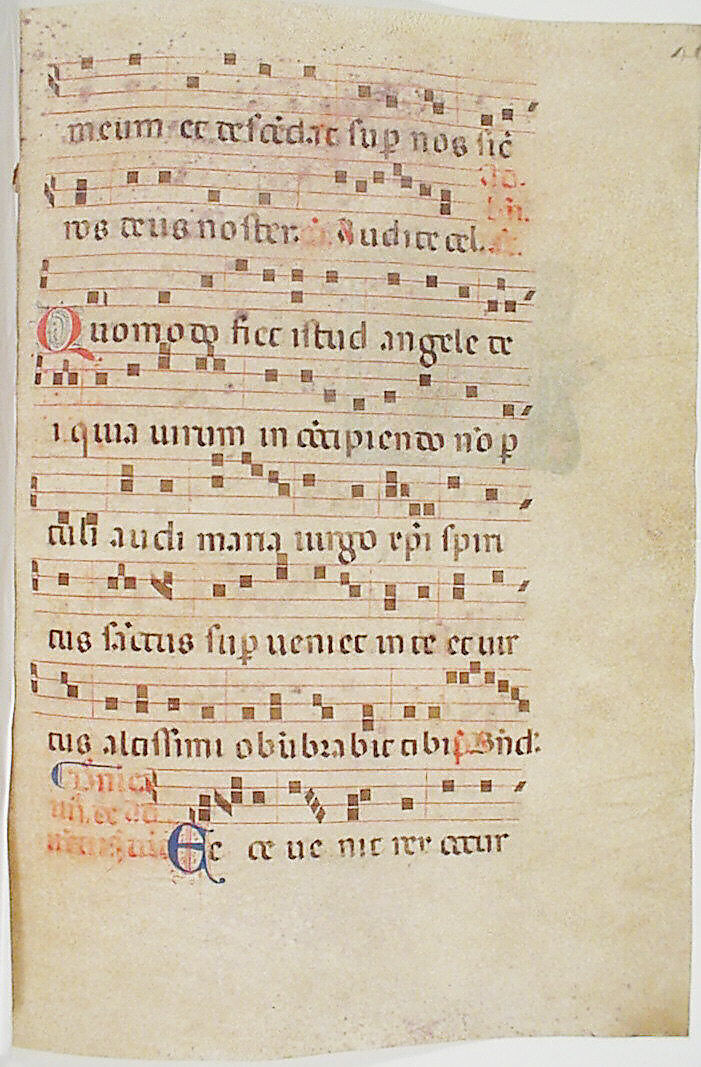 meum et descēdat sup nos sic
ros deus noster. Audite cel.
Quomodo fiet istud angele de
i quia uirum in cōcipiendo nō p
tuli audi maria uirgo xpī spiri
tus sāctus sup ueniet in te et uir
tus altissimi obūbrabit tibi p̄. Bn̄d:
Ecce ue nit rex occur